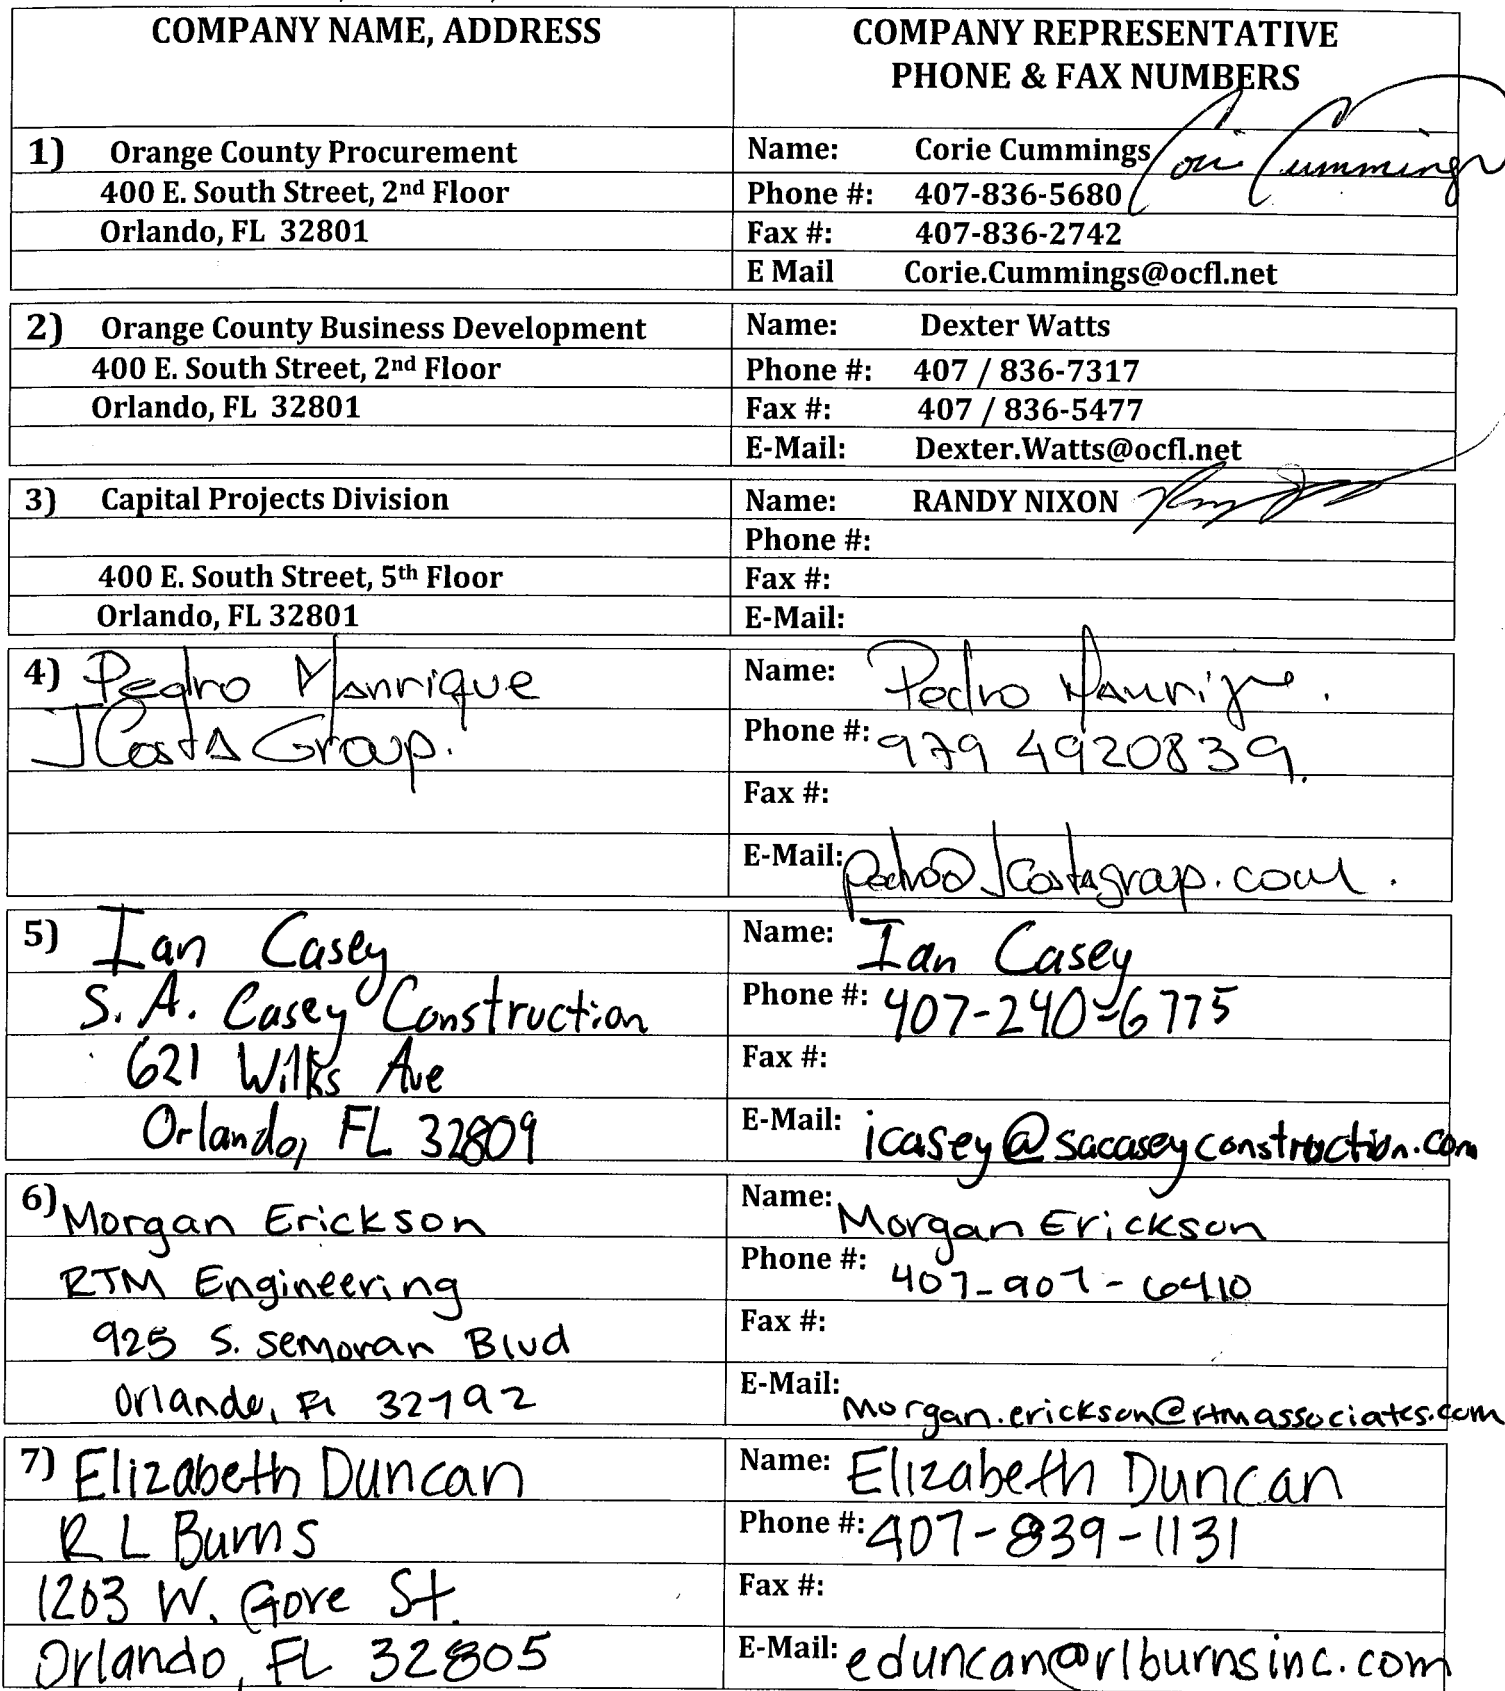 COMPANY NAME, ADDRESS
COMPANY REPRESENTATIVE
PHONE & FAX NUMBERS
1) Orange County Procurement
Name: Corie Cummings Cori Cummings
400 E. South Street, 2nd Floor
Phone #: 407-836-5680
Orlando, FL 32801
Fax #: 407-836-2742
E Mail Corie.Cummings@ocfl.net
2) Orange County Business Development
Name: Dexter Watts
400 E. South Street, 2nd Floor
Phone #: 407 / 836-7317
Orlando, FL 32801
Fax #: 407 / 836-5477
E-Mail: Dexter.Watts@ocfl.net
3) Capital Projects Division
Name: RANDY NIXON
Phone #:
400 E. South Street, 5th Floor
Fax #:
Orlando, FL 32801
E-Mail:
4) Pedro Manrique
Name: Pedro Manrique.
JCosta Group.
Phone #: 979 4920839.
Fax #:
E-Mail: pedro@Jcostagroup.com.
5) Ian Casey
Name: Ian Casey
S. A. Casey Construction
Phone #: 407-240-6775
621 Wilks Ave
Fax #:
Orlando, FL 32809
E-Mail: icasey@sacaseyconstruction.com
6) Morgan Erickson
Name: Morgan Erickson
RTM Engineering
Phone #: 407-907-6410
925 S. Semoran Blvd
Fax #:
Orlando, Fl 32792
E-Mail: morgan.erickson@rtmassociates.com
7) Elizabeth Duncan
Name: Elizabeth Duncan
R L Burns
Phone #: 407-839-1131
1203 W. Gore St.
Fax #:
Orlando, FL 32805
E-Mail: eduncan@rlburnsinc.com